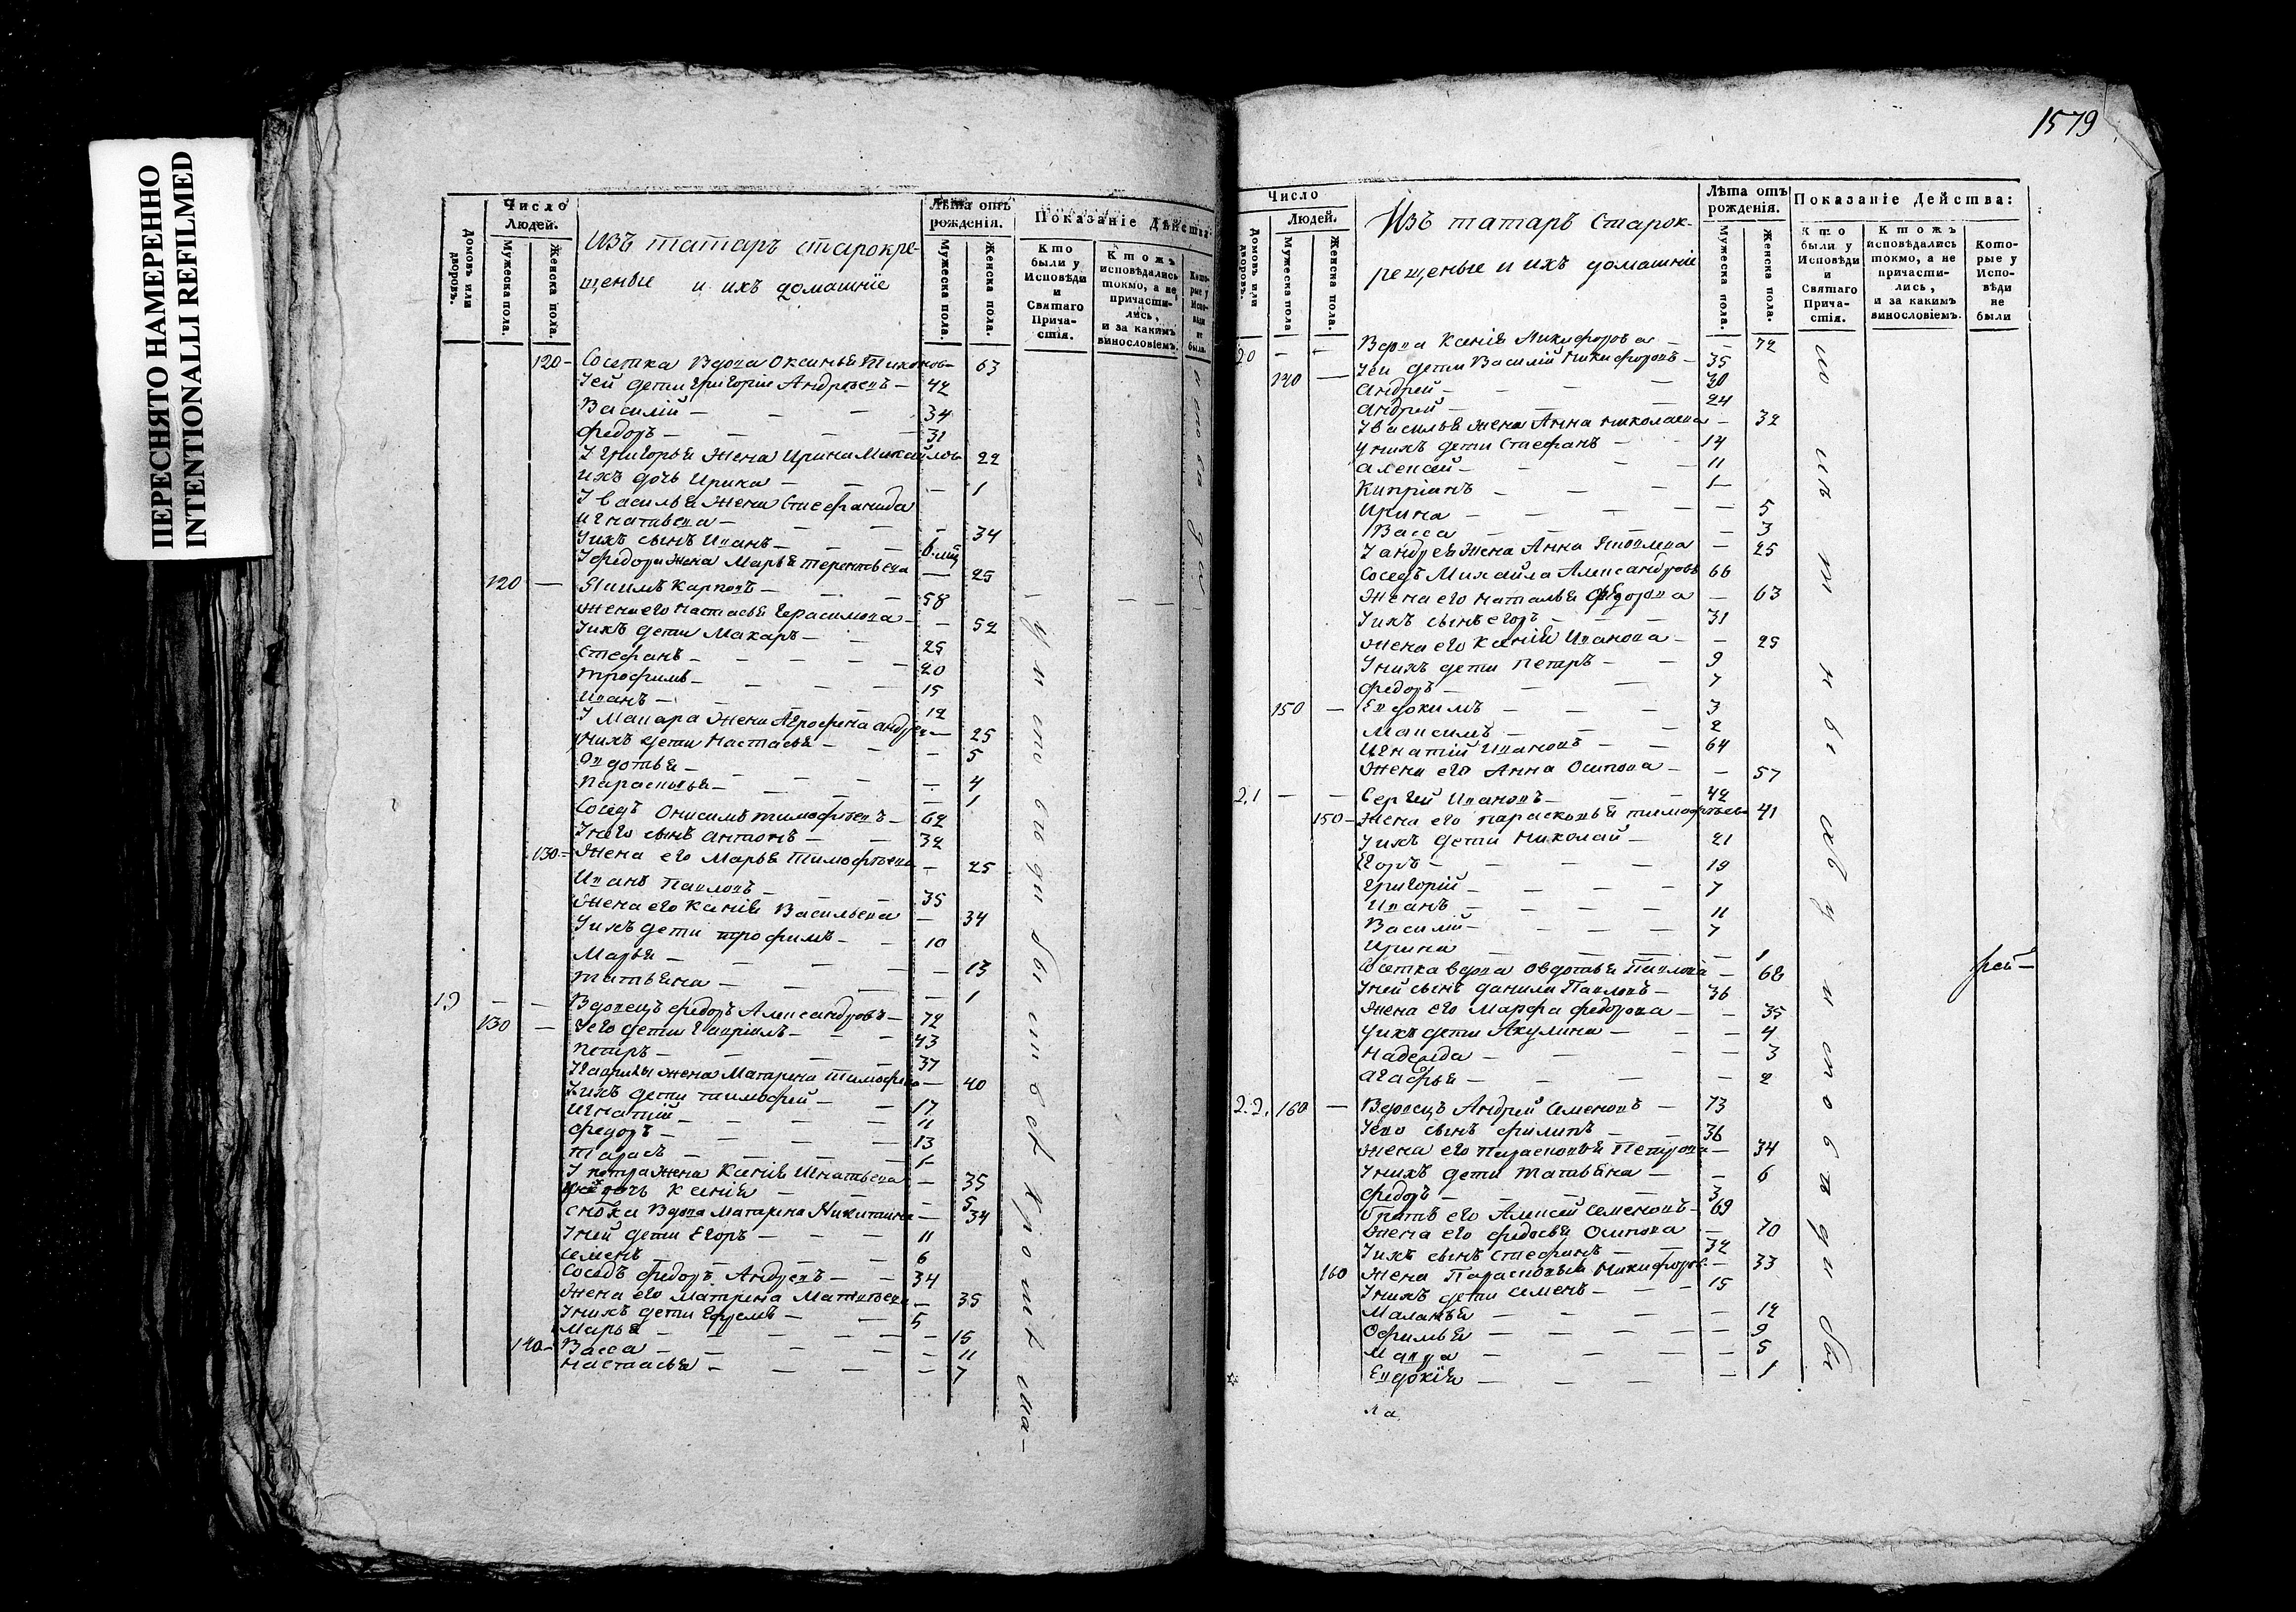 ПЕРЕСНЯТО НАМЕРЕННО
INTENTIONALLI REFILMED
Число
Людей.
Домовъ или дворовъ.
Мужеска пола.
Женска пола.
Изъ татаръ старокре-
щеные и ихъ домашніе
Лѣта отъ
рожденія.
Мужеска пола.
Женска пола.
Показаніе Дѣйства
Кто были у Исповѣди и Святаго Прича-стія.
Ктожъ исповѣдались токмо, а не причасти-лись, и за какимъ винословіемъ.
Кото-рые у Испо-вѣди не были.
120 - Соседка Вдова Оксинья Тихонов- 63
У ей дети Григорій Андреевъ - 42
Василій - - - 34
Федоръ - - - 31
У Григорья Жена Ирина Михайлов 22
Ихъ дочь Ирина - - - 1
У Василья Жена Стефанида
Игнатьева - - - 34
У ихъ сынъ Иванъ - - 6.мц
У Федора Жена Марья Терентьева - 25
120 - Екимъ Карповъ - - - 58
Жена его Настасья Герасимова - - 52
У ихъ дети Макаръ - - 25
Стефанъ - - - 20
Трофимъ - - - 15
Иванъ - - - 12
У Макара Жена Агрофена Андре - 25
У нихъ дети Настасья - - - 5
Овдотья - - - 4
Парасковья - - - 1
Соседъ Онисимъ Тимофѣевъ - 62
У него сынъ Антонъ - - 32
130 - Жена его Марья Тимофѣева - 25
Иванъ Павловъ - - - 35
Жена его Ксенія Васильева - 34
У ихъ дети Трофимъ - - 10
Марья - - - 13
Татьяна - - - 1
19 - - Вдовецъ Федоръ Александровъ - 72
130 - У его дети Гаврилъ - - - 43
Петръ - - - 37
У Гаврилы Жена Матрена Тимофее - 40
У ихъ дети Тимофей - - 17
Игнатій - - - 11
Федоръ - - - 13
Тарасъ - - - 1
У Петра Жена Ксенія Игнатьева - 35
дочь Ксенія - - - 5
сноха Вдова Матрена Никитина - 34
У ней дети Егоръ - - - 11
Семенъ - - - 6
Соседъ Федоръ Андреевъ - - 34
Жена его Матрена Матвѣева - 35
У нихъ дети Ефремъ - - 5
Марья - - - 15
140 - Васса - - - 11
Настасья - - - 7
у и с п о в ѣ д и
1579
Число
Людей.
Домовъ или дворовъ.
Мужеска пола
Женска пола.
Изъ татаръ Старок-
рещеные и ихъ домашніе
Лѣта отъ
рожденія.
Мужеска пола.
Женска пола.
Показаніе Действа:
Кто были у Исповѣди и Святаго Прича-стія.
Ктожъ исповѣдались токмо, а не причасти-лись, и за какимъ винословіемъ.
Кото-рые у Испо-вѣди не были
20 - - Вдова Ксенія Никифорова - - 72
140 - У ей дети Василій Никифоровъ - 35
Андрей - - - 30
Андрей - - - 24
У Василья Жена Анна Николаева - 32
У нихъ дети Стефанъ - - 14
Алексей - - - 11
Кипріанъ - - - 1
Ирина - - - 5
Васса - - - 3
У Андрея Жена Анна Яковлева - 25
Соседъ Михайла Александровъ 66
Жена его Наталья Федорова - 63
У ихъ сынъ Егоръ - - - 31
Жена его Ксенія Иванова - - 25
У нихъ дети Петръ - - 9
Федоръ - - - 7
150 - Евдокимъ - - - 3
Максимъ - - - 2
Игнатій Ивановъ - - 64
Жена его Анна Осипова - - 57
21 - - Сергей Ивановъ - - - 42
150 - Жена его Парасковья Тимофѣева 41
У ихъ дети Николай - 21
Егоръ - - - 19
Григорій - - - 7
Иванъ - - - 11
Василій - - - 7
Ирина - - 1
Соседка вдова Овдотья Павлова - 68
У ней сынъ Данила Павловъ - 36
Жена его Марфа Федорова - - 35
У ихъ дети Акулина - - - 4
Надежда - - - 3
Агафья - - - 2
22. 160 - Вдовецъ Андрей Семеновъ - 73
У его сынъ Филипъ - - 36
Жена его Парасковья Петрова - 34
У нихъ дети Татьяна - - 6
Федоръ - - - 3
Братъ его Алексей Семеновъ - 69
Жена его Федосья Осипова - 70
У ихъ сынъ Стефанъ - - 32
160 Жена Парасковья Никифоров - 33
У нихъ дети Семенъ - - - 15
Маланья - - - 12
Офимья - - - 9
Мавра - - - 5
Евдокія - - - 1